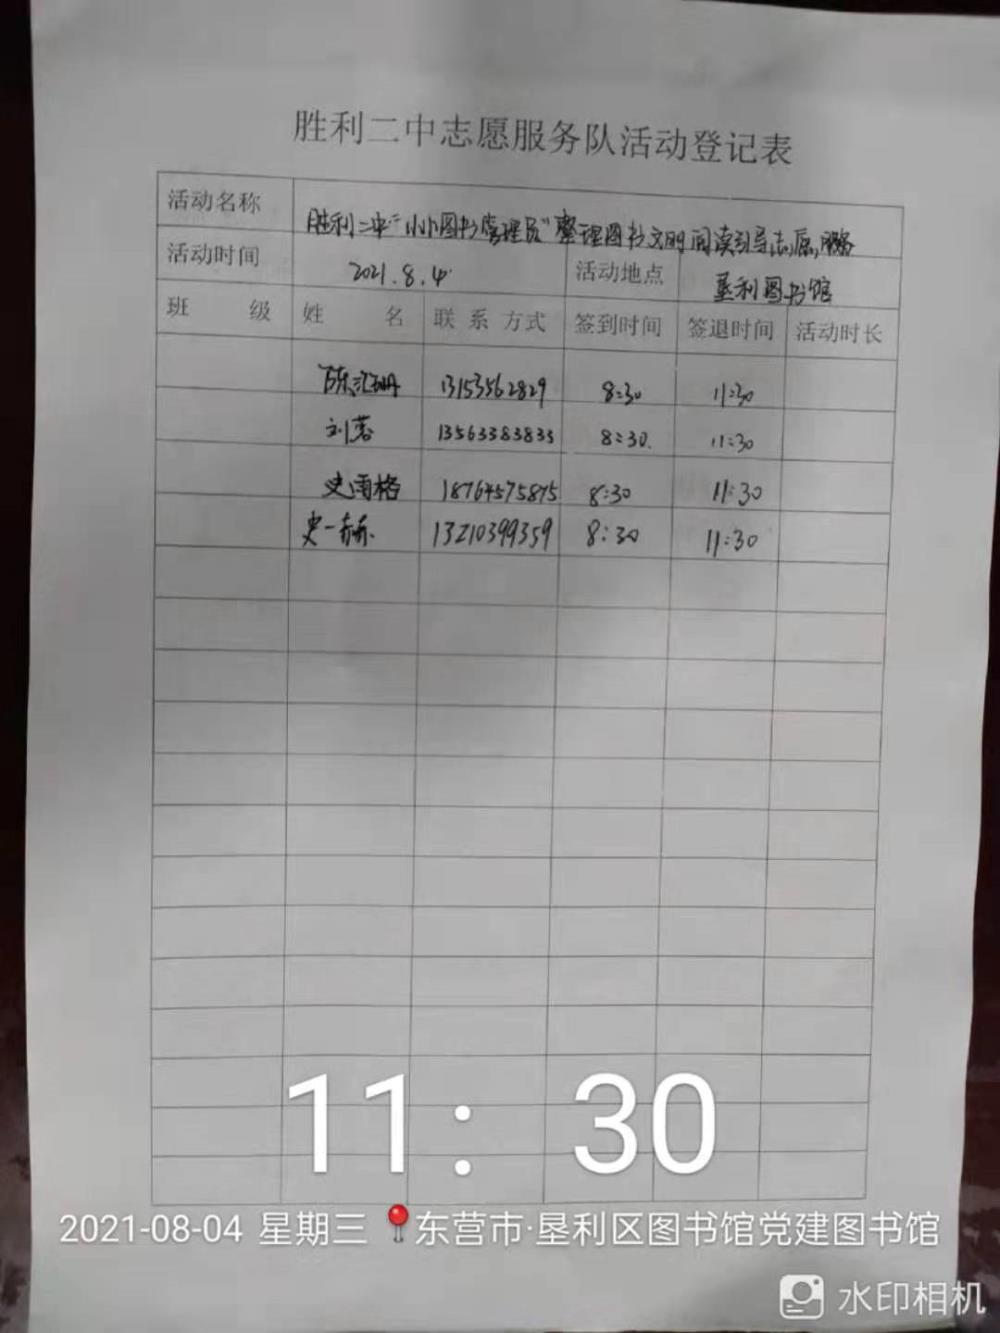 胜利二中志愿服务队活动登记表
活动名称 胜利二中"小小图书管理员"整理图书文明阅读引导志愿服务
活动时间 2021.8.4 活动地点 垦利图书馆
班 级 姓 名 联系方式 签到时间 签退时间 活动时长
13153562829 8:30 11:30
刘蓉 13563383833 8:30. 11:30
史雨格 18764575875 8:30 11:30
史一赫 13210399359 8:30 11:30
11: 30
2021-08-04 星期三 东营市·垦利区图书馆党建图书馆
水印相机